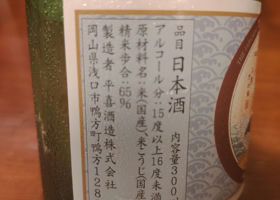 品目 日本酒 内容量300
アルコール分:15度以上16度未満
原材料名:米(国産)、米こうじ(国産
精米歩合:65%
製造者 平喜酒造株式会社
岡山県浅口市鴨方町鴨方128